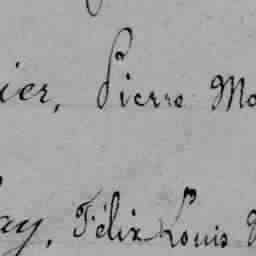 ier, Pierre Mo
ay, Félix Louis